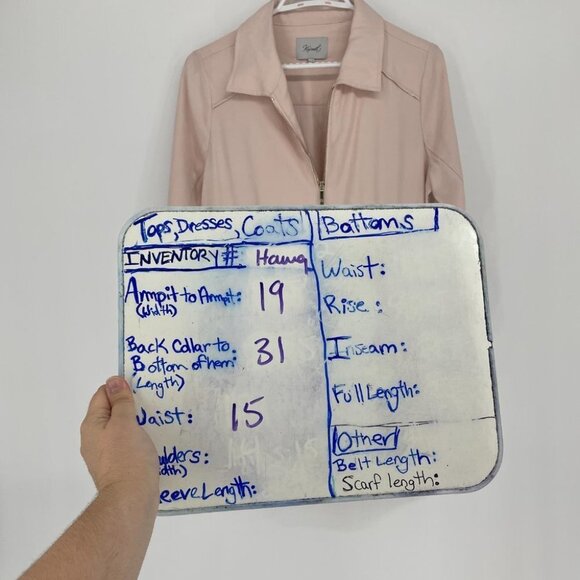 Tops, Dresses, Coats
INVENTORY #
Armpit to Armpit: 19
(Width)
Back Collar to 31
Bottom of hem:
(Length)
Waist: 15
oulders:
dth)
eeve Length:
Bottoms
Waist:
Rise:
Inseam:
Full Length:
Other
Belt Length:
Scarf length: